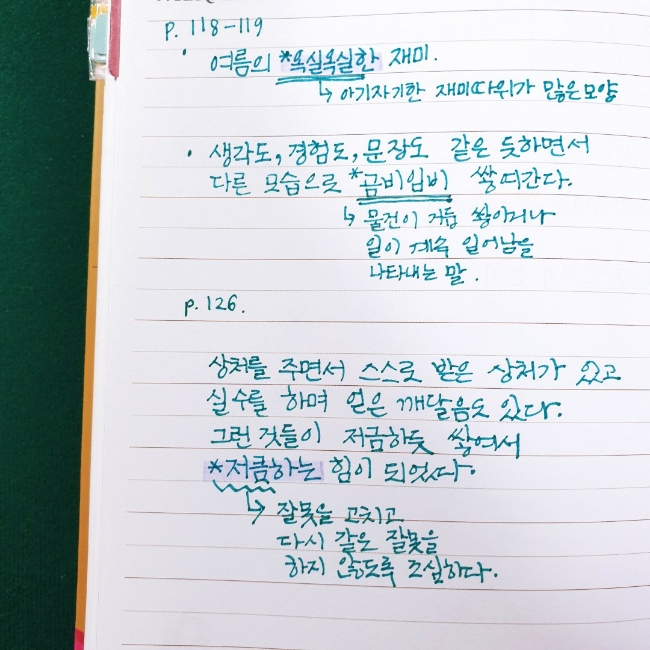 p. 118-119
· 여름의 *옥실옥실한 재미.
↳ 아기자기한 재미따위가 많은모양
· 생각도, 경험도, 문장도 같은 듯하면서
다른 모습으로 *곰비임비 쌓여간다.
↳ 물건이 거듭 쌓이거나
일이 계속 일어남을
나타내는 말.
p. 126.
상처를 주면서 스스로 받은 상처가 있고
실수를 하며 얻은 깨달음도 있다.
그런 것들이 저금하듯 쌓여서
*저큼하는 힘이 되었다.
↳ 잘못을 고치고
다시 같은 잘못을
하지 않도록 조심하다.